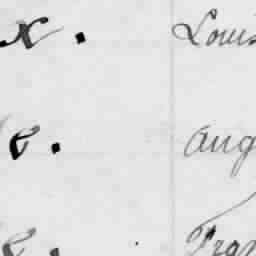 x. Louis
e. Aug
e. Fran